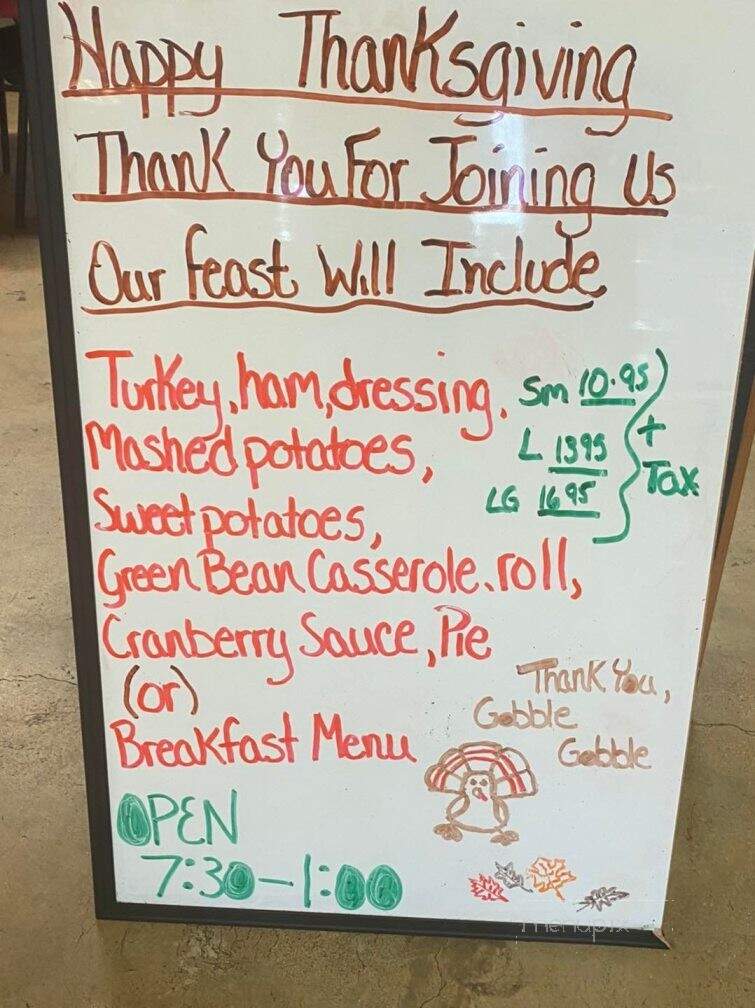 Happy Thanksgiving
Thank You For Joining Us
Our feast Will Include
Turkey, ham, dressing,
Mashed potatoes,
Sweet potatoes,
Green Bean Casserole, roll,
Cranberry Sauce, Pie
(or)
Breakfast Menu
Sm 10.95
L 13 95
LG 16 95
+
Tax
Thank You,
Gobble
Gobble
OPEN
7:30-1:00
menupix